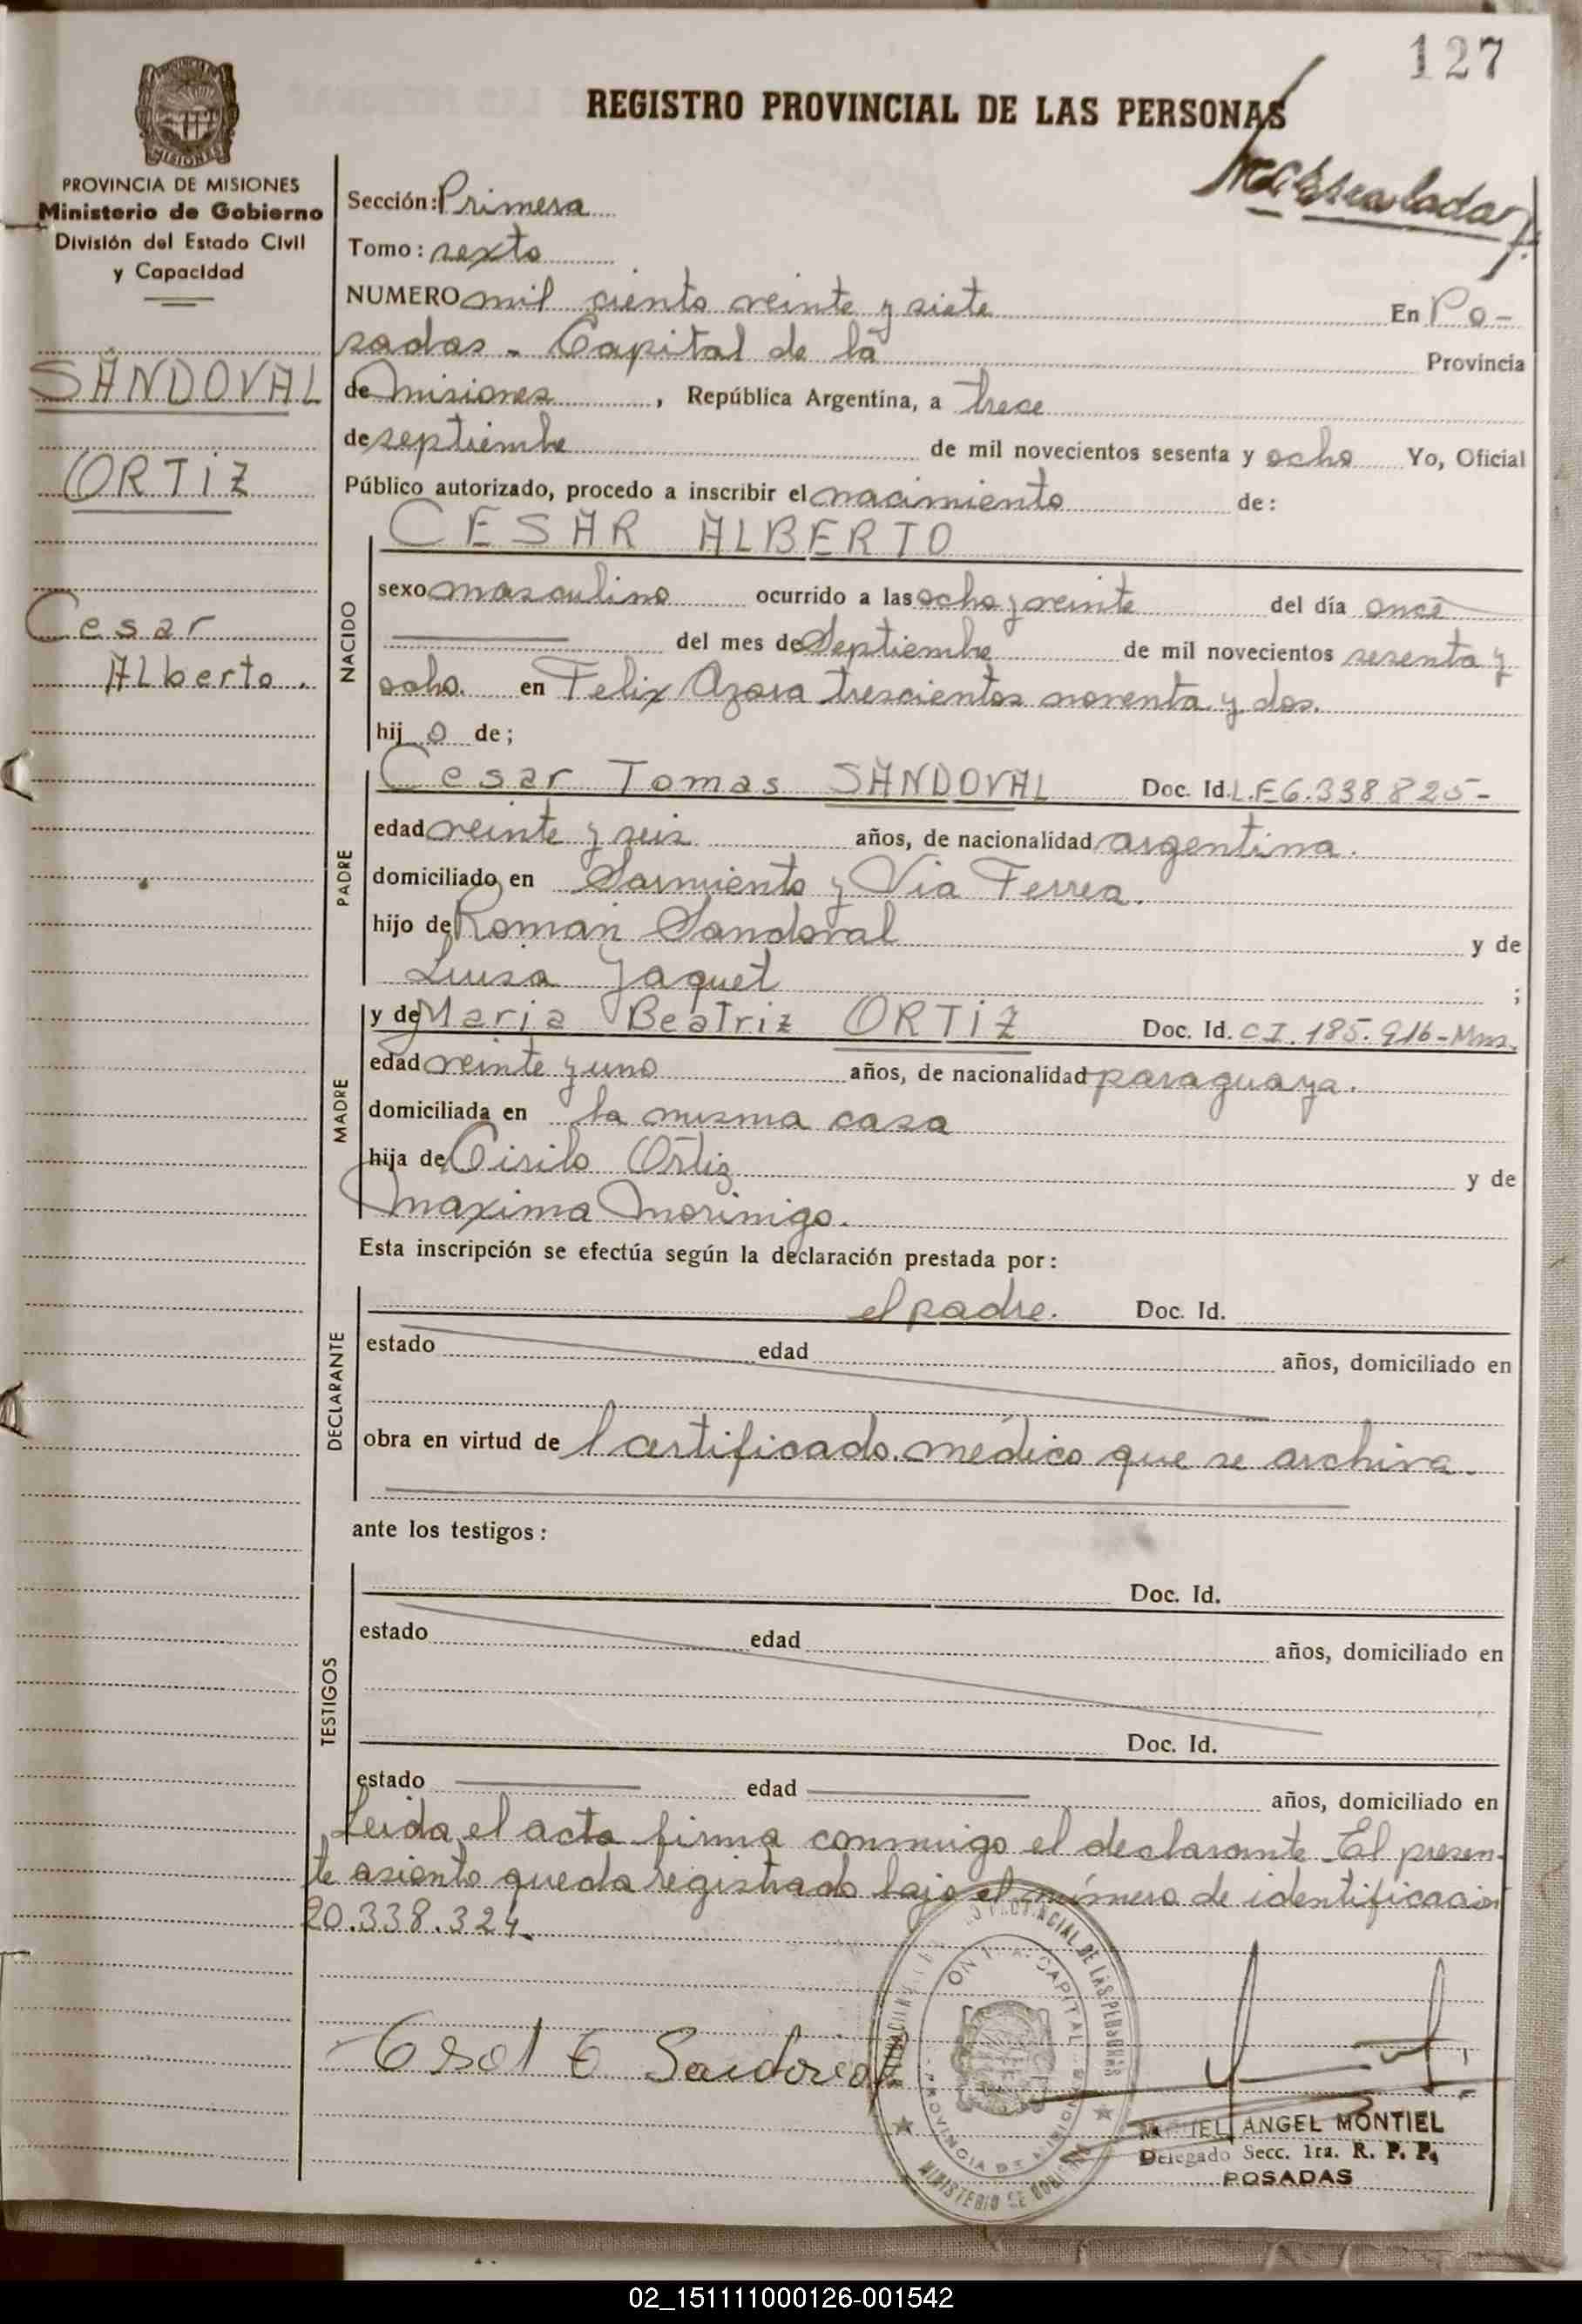 127
REGISTRO PROVINCIAL DE LAS PERSONAS
MISIONES
PROVINCIA DE MISIONES
Ministerio de Gobierno
División del Estado Civil
y Capacidad
SANDOVAL
ORTIZ
Cesar
Alberto.
Sección: Primera
Tomo: sexto
NUMERO mil ciento veinte y siete En Po-
sadas - Capital de la Provincia
de Misiones, República Argentina, a trece
de septiembre de mil novecientos sesenta y ocho Yo, Oficial
Público autorizado, procedo a inscribir el nacimiento de:
NACIDO
CESAR ALBERTO
sexo masculino ocurrido a las ocho y veinte del día once
del mes de Septiembre de mil novecientos sesenta y
ocho. en Felix Azara trescientos noventa y dos.
hijo de;
PADRE
Cesar Tomas SANDOVAL Doc. Id. L.E 6.338825-
edad veinte y seis años, de nacionalidad argentina.
domiciliado en Sarmiento y Via Ferrea.
hijo de Roman Sandoval y de
Luisa Jaquet ;
MADRE
y de Maria Beatriz ORTIZ Doc. Id. C.I. 185.916-Mns.
edad veinte y uno años, de nacionalidad paraguaya.
domiciliada en la misma casa
hija de Cirilo Ortiz y de
Maxima Morinigo.
Esta inscripción se efectúa según la declaración prestada por:
DECLARANTE
el padre. Doc. Id.
estado edad años, domiciliado en
obra en virtud del certificado médico que se archiva.
ante los testigos:
TESTIGOS
Doc. Id.
estado edad años, domiciliado en
Doc. Id.
estado edad años, domiciliado en
Leida el acta firma conmigo el declarante. El presen-
te asiento queda registrado bajo el número de identificación
20.338.324.
Sandoval
PROVINCIAL DE LAS PERSONAS
CAPITAL
PROVINCIA DE MISIONES
MINISTERIO DE GOBIERNO
MIGUEL ANGEL MONTIEL
Delegado Secc. 1ra. R. P. P.
POSADAS
02_151111000126-001542